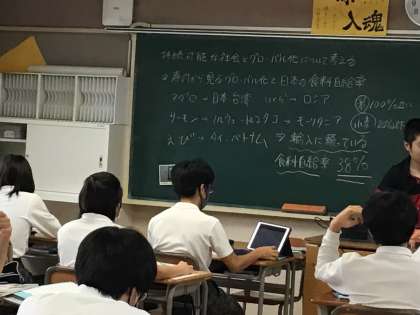 入魂
持続可能な社会とグローバル化について考える
②寿司から見るグローバル化と日本の食料自給率
マグロ→日本 台湾 いくら→ロシア 米 100%近い
サーモン→ノルウェー たこ→モーリタニア 小麦
えび→タイ、ベトナム ⇒輸入に頼っている
食料自給率 38%